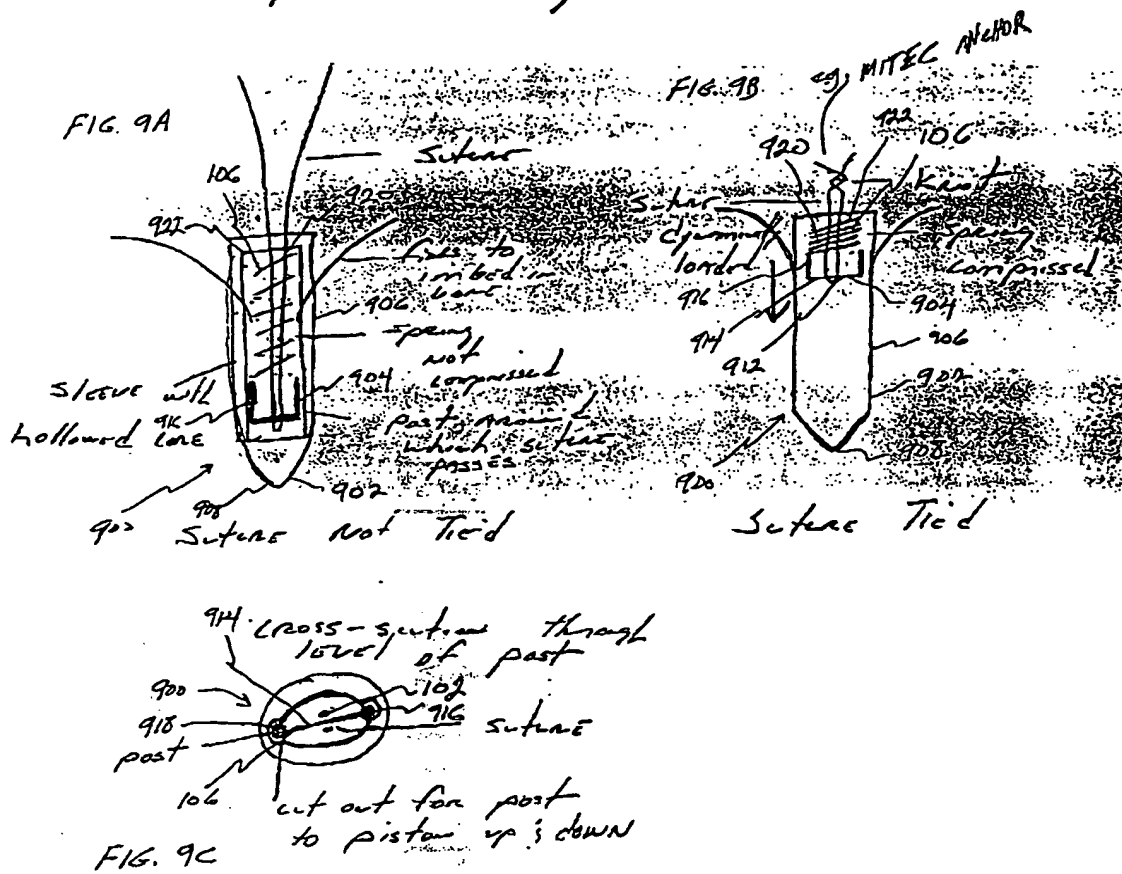 FIG. 9A
Suture
106
920
922
fins to
imbed in
bone
906
Spring
not
compressed
904
SLEEVE with
hollowed CORE
916
post around
which suture
passes
902
908
900
Suture Not Tied
FIG. 9B
eg. MITEC ANCHOR
920
922
106
Knot
Suture
dynamic
loaded
Spring
compressed
916
904
914
912
906
902
900
908
Suture Tied
914
cross-section through
level of post
900
102
916
918
suture
post
106
cut out for post
to piston up & down
FIG. 9C